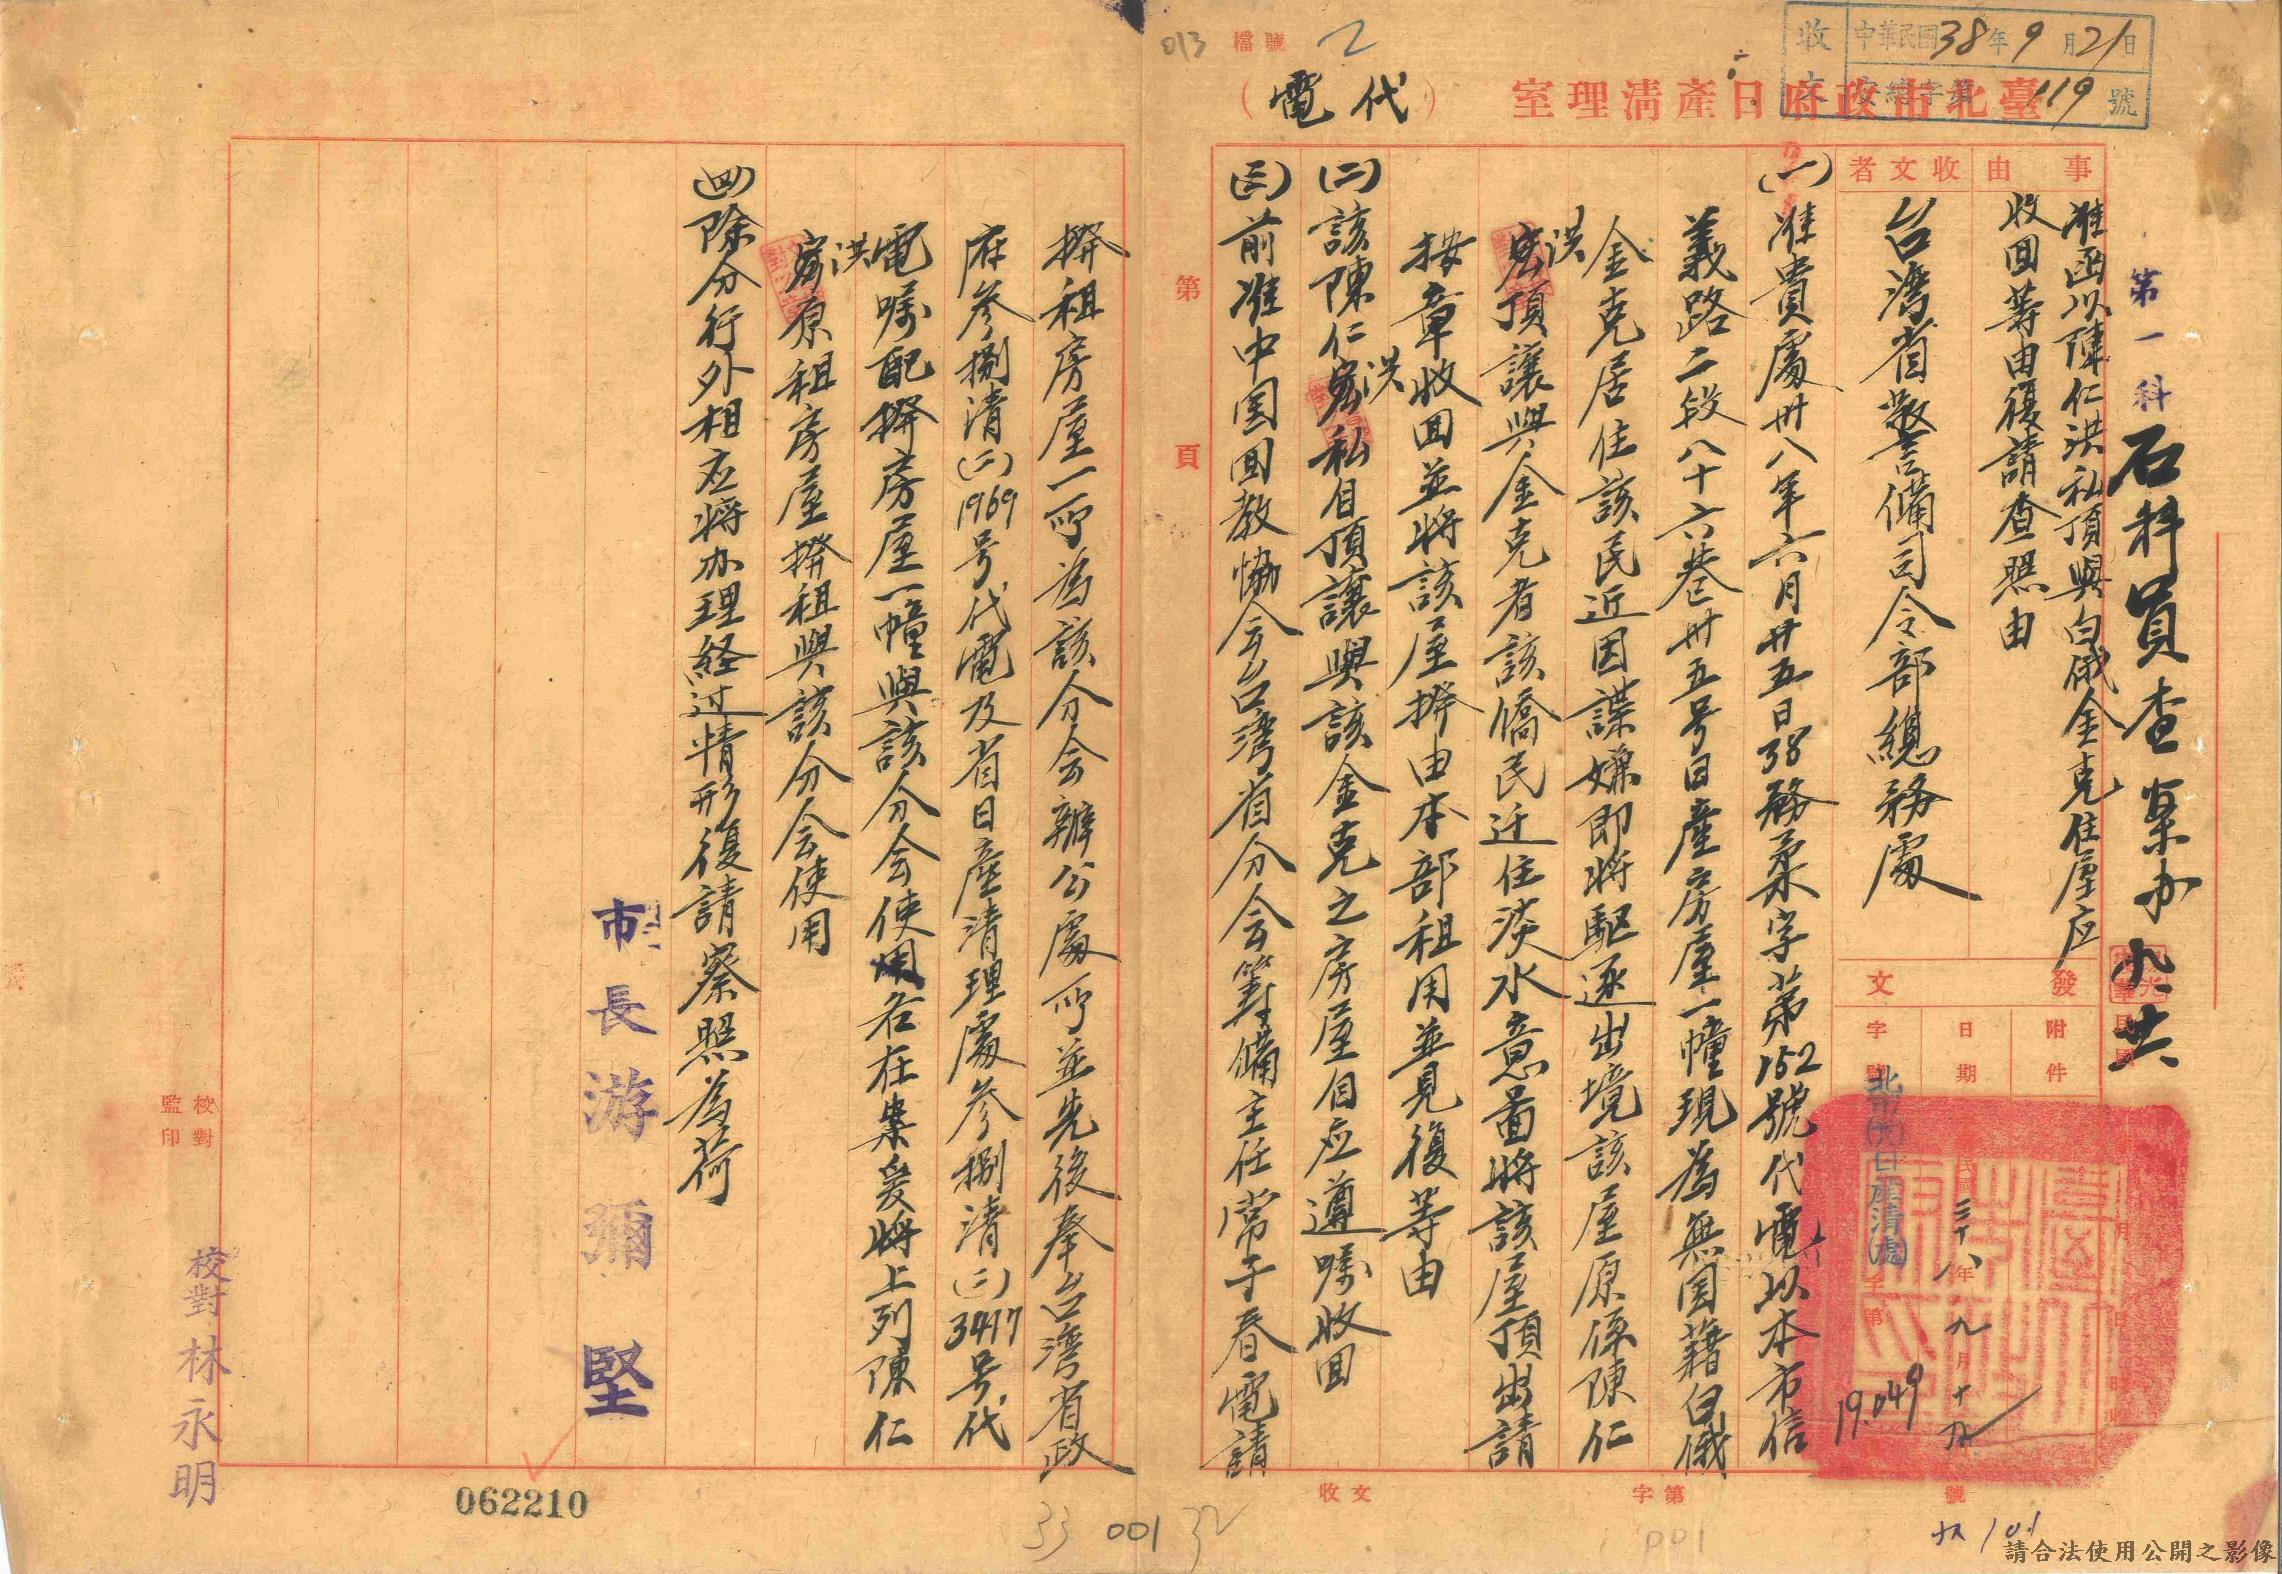 收 中華民國38年9月21日
119號
檔號 2
013
臺北市政府日產清理室
（代電）
第一科
石科員查案办 九.廿
事由
准函以陳仁洪私頂與白俄金克住屋应
收回等由復請查照由
收文者
台灣省警備司令部總務處
發文
附件
日期
三十八年九月十九
字號
北市(六)日產清(處)字第
19.049
號
(一)准貴處卅八年六月廿五日38務柔字第152號代電以本市信
義路二段八十六巷卅五号日產房屋一幢現為無国籍白俄
金克居住該民近因諜嫌即將驅逐出境該屋原係陳仁
洪頂讓與金克者該僑民迁住淡水意圖將該屋頂出請
按章收回並將該屋撥由本部租用並見復等由
(二)該陳仁洪私自頂讓與該金克之房屋自应遵嘱收回
(三)前准中国回教協会台灣省分会籌備主任常子春電請
第 頁
撥租房屋一所為該分会辦公處所並先後奉台灣省政
府參捌清(二)1969号代電及省日產清理處參捌清(二)3417号代
電嘱配撥房屋一幢與該分会使用各在案爰將上列陳仁
洪原租房屋撥租與該分会使用
(四)除分行外相应將办理経过情形復請察照為荷
市長游彌堅
校對
監印
校對林永明
收文
字第
號
062210
33
001
32
001
請合法使用公開之影像